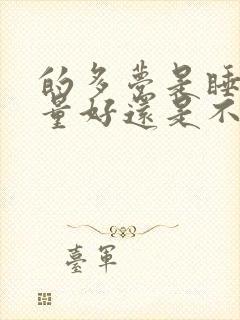 的多夢是睡
量好還是不
臺軍